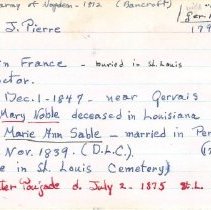 array of Waydean - 1972 (Bancroft)
J. Pierre 179
in France - buried in St. Louis
ctor.
Dec. 1 - 1847 - near Gervais
Mary Noble deceased in Louisiana
Marie Ann Sable - married in Per
Nov. 1839. (D.L.C.)
e in St. Louis Cemetery
ter Toujade d. July 2 - 1875 St. L.